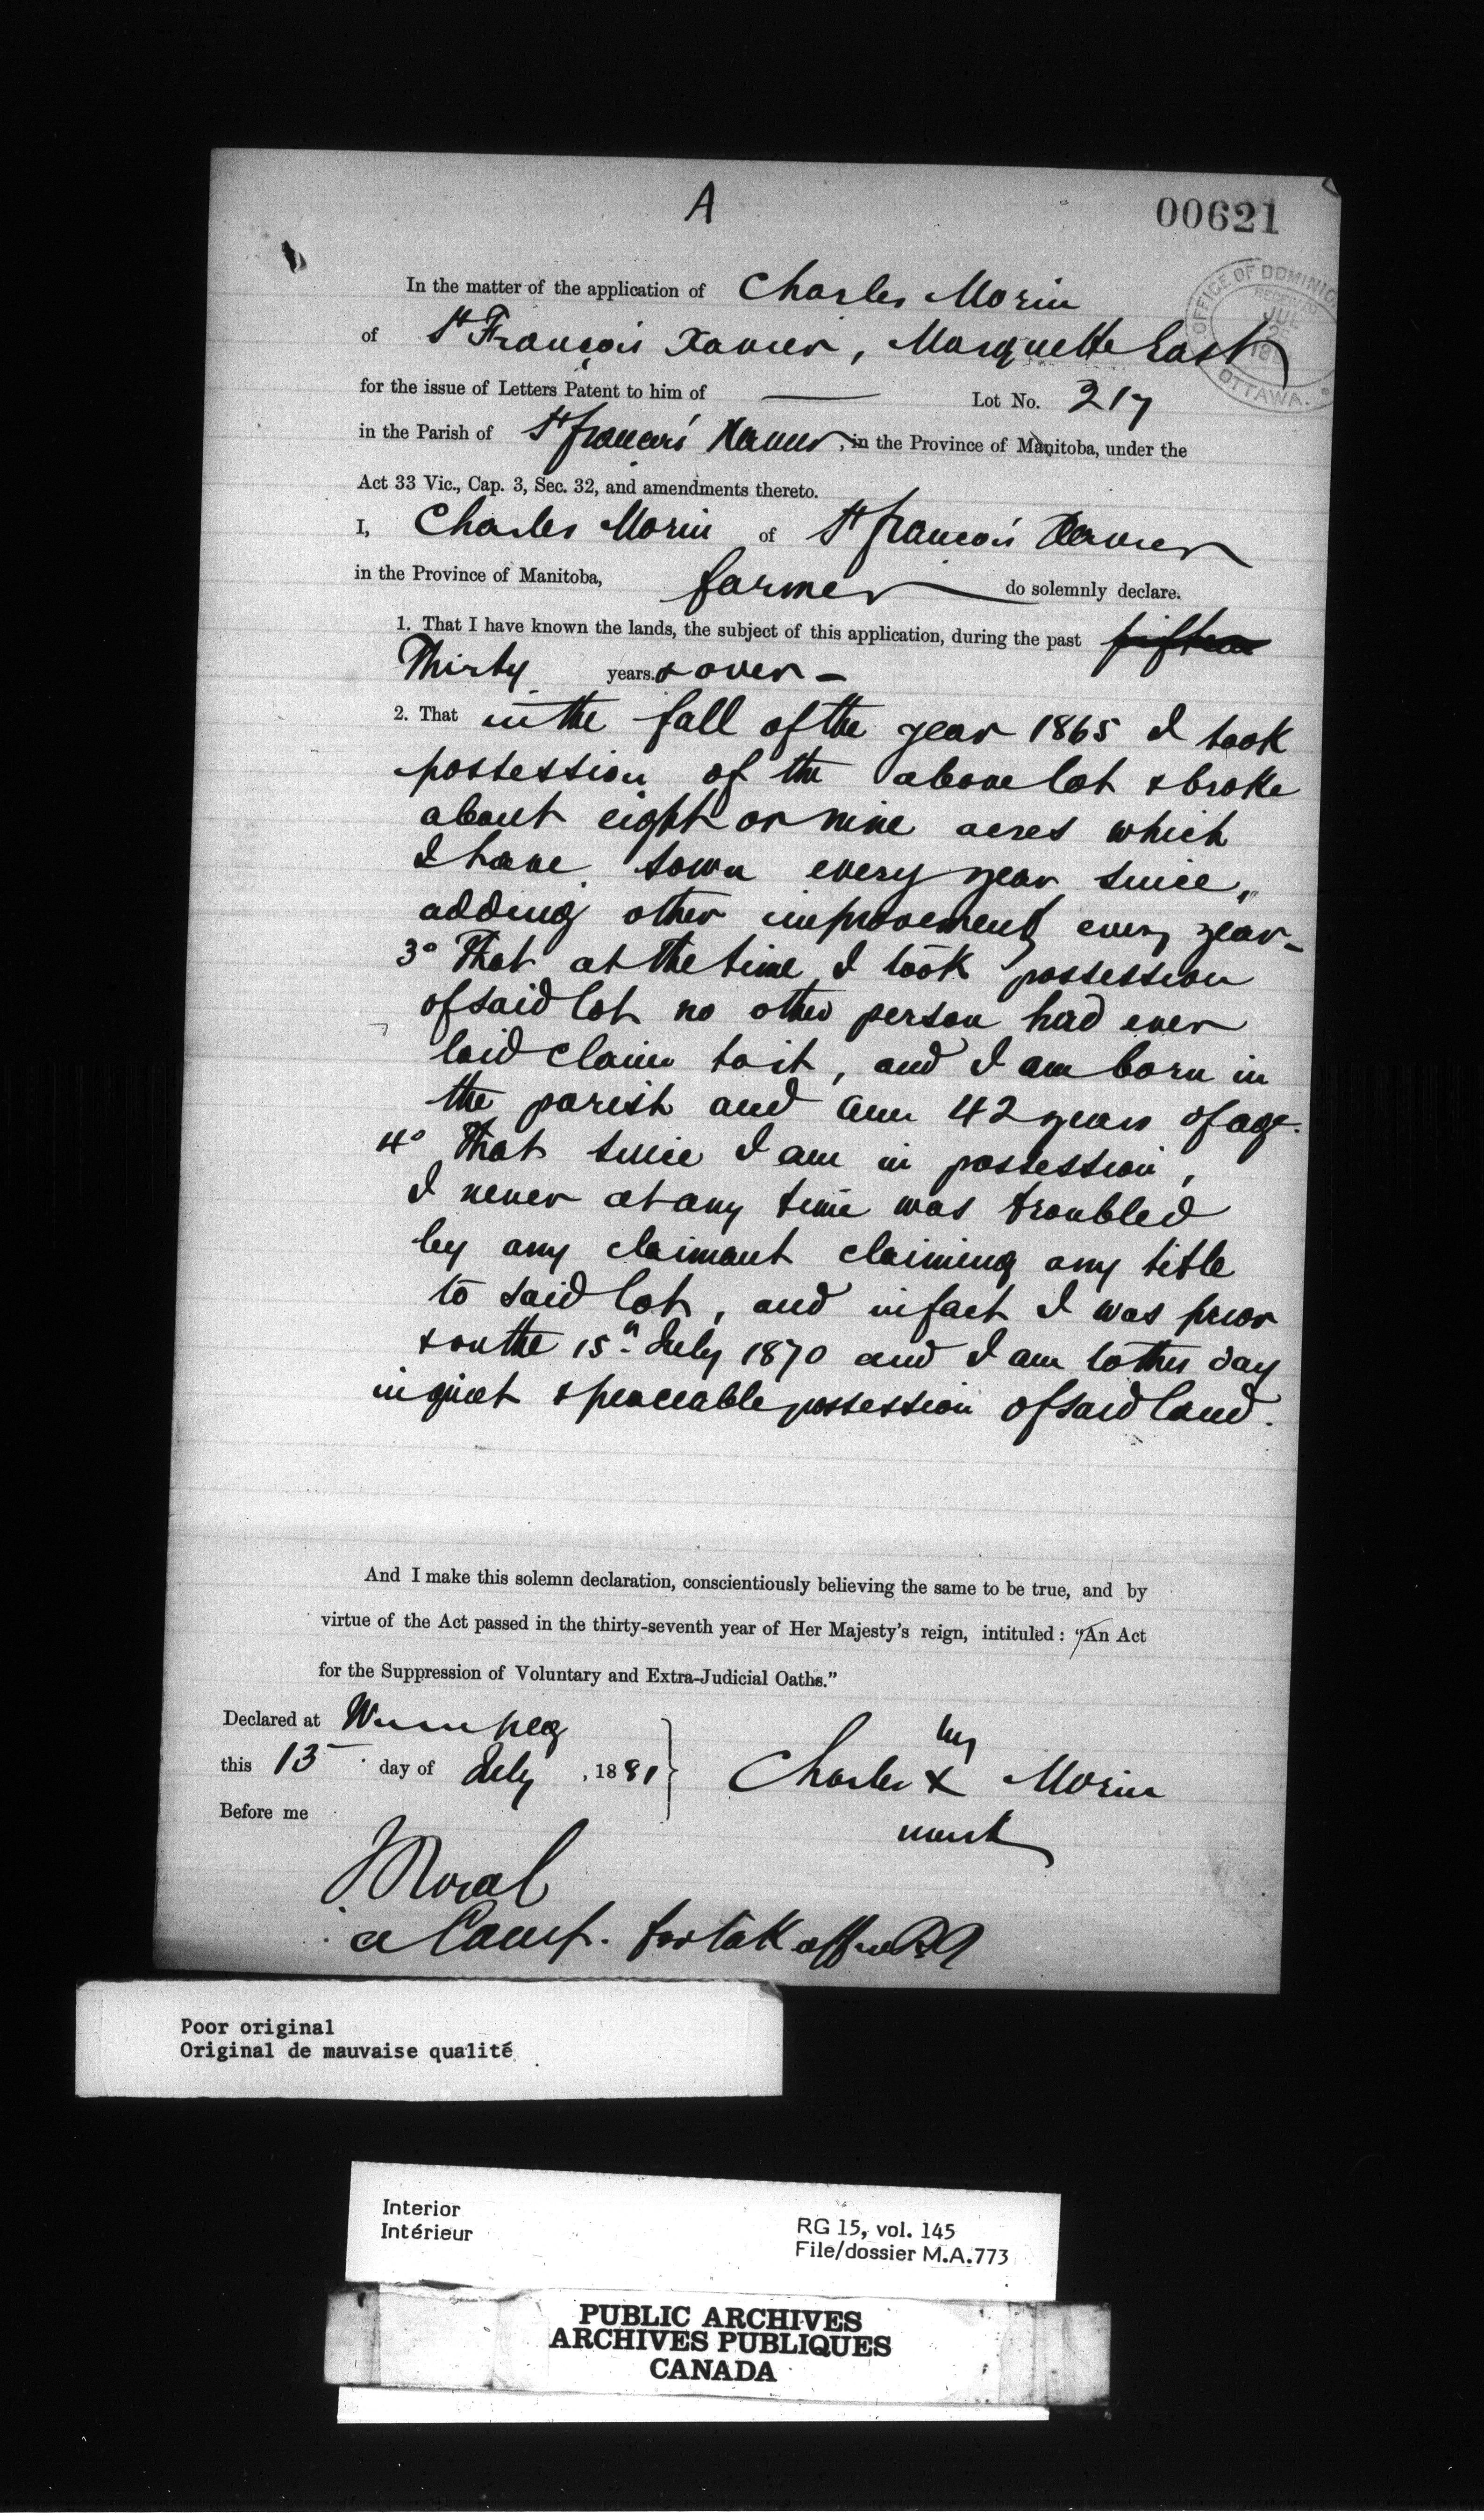 A
00621
OFFICE OF DOMINIO
RECEIVED
JUL
OTTAWA.
In the matter of the application of Charles Morin
of St François Xavier, Marquette East
for the issue of Letters Patent to him of — Lot No. 217
in the Parish of St François Xavier, in the Province of Manitoba, under the
Act 33 Vic., Cap. 3, Sec. 32, and amendments thereto.
I, Charles Morin of St François Xavier
in the Province of Manitoba, farmer do solemnly declare.
1. That I have known the lands, the subject of this application, during the past fifteen
Thirty years. & over –
2. That in the fall of the year 1865 I took
possession of the above lot & broke
about eight or nine acres which
I have sown every year since,
adding other improvements every year –
3° That at the time I took possession
of said lot no other person had ever
laid claim to it, and I am born in
the parish and am 42 years of age.
4° That since I am in possession,
I never at any time was troubled
by any claimant claiming any title
to said lot, and in fact I was prior
& on the 15th July 1870 and I am to this day
in quiet & peaceable possession of said land.
And I make this solemn declaration, conscientiously believing the same to be true, and by
virtue of the Act passed in the thirty-seventh year of Her Majesty's reign, intituled: "An Act
for the Suppression of Voluntary and Extra-Judicial Oaths."
Declared at Winnipeg
this 13 day of July, 1881
his
Charles X Morin
mark
Before me
a Comr. for tak aff in
Poor original
Original de mauvaise qualité
Interior
Intérieur
RG 15, vol. 145
File/dossier M.A.773
PUBLIC ARCHIVES
ARCHIVES PUBLIQUES
CANADA